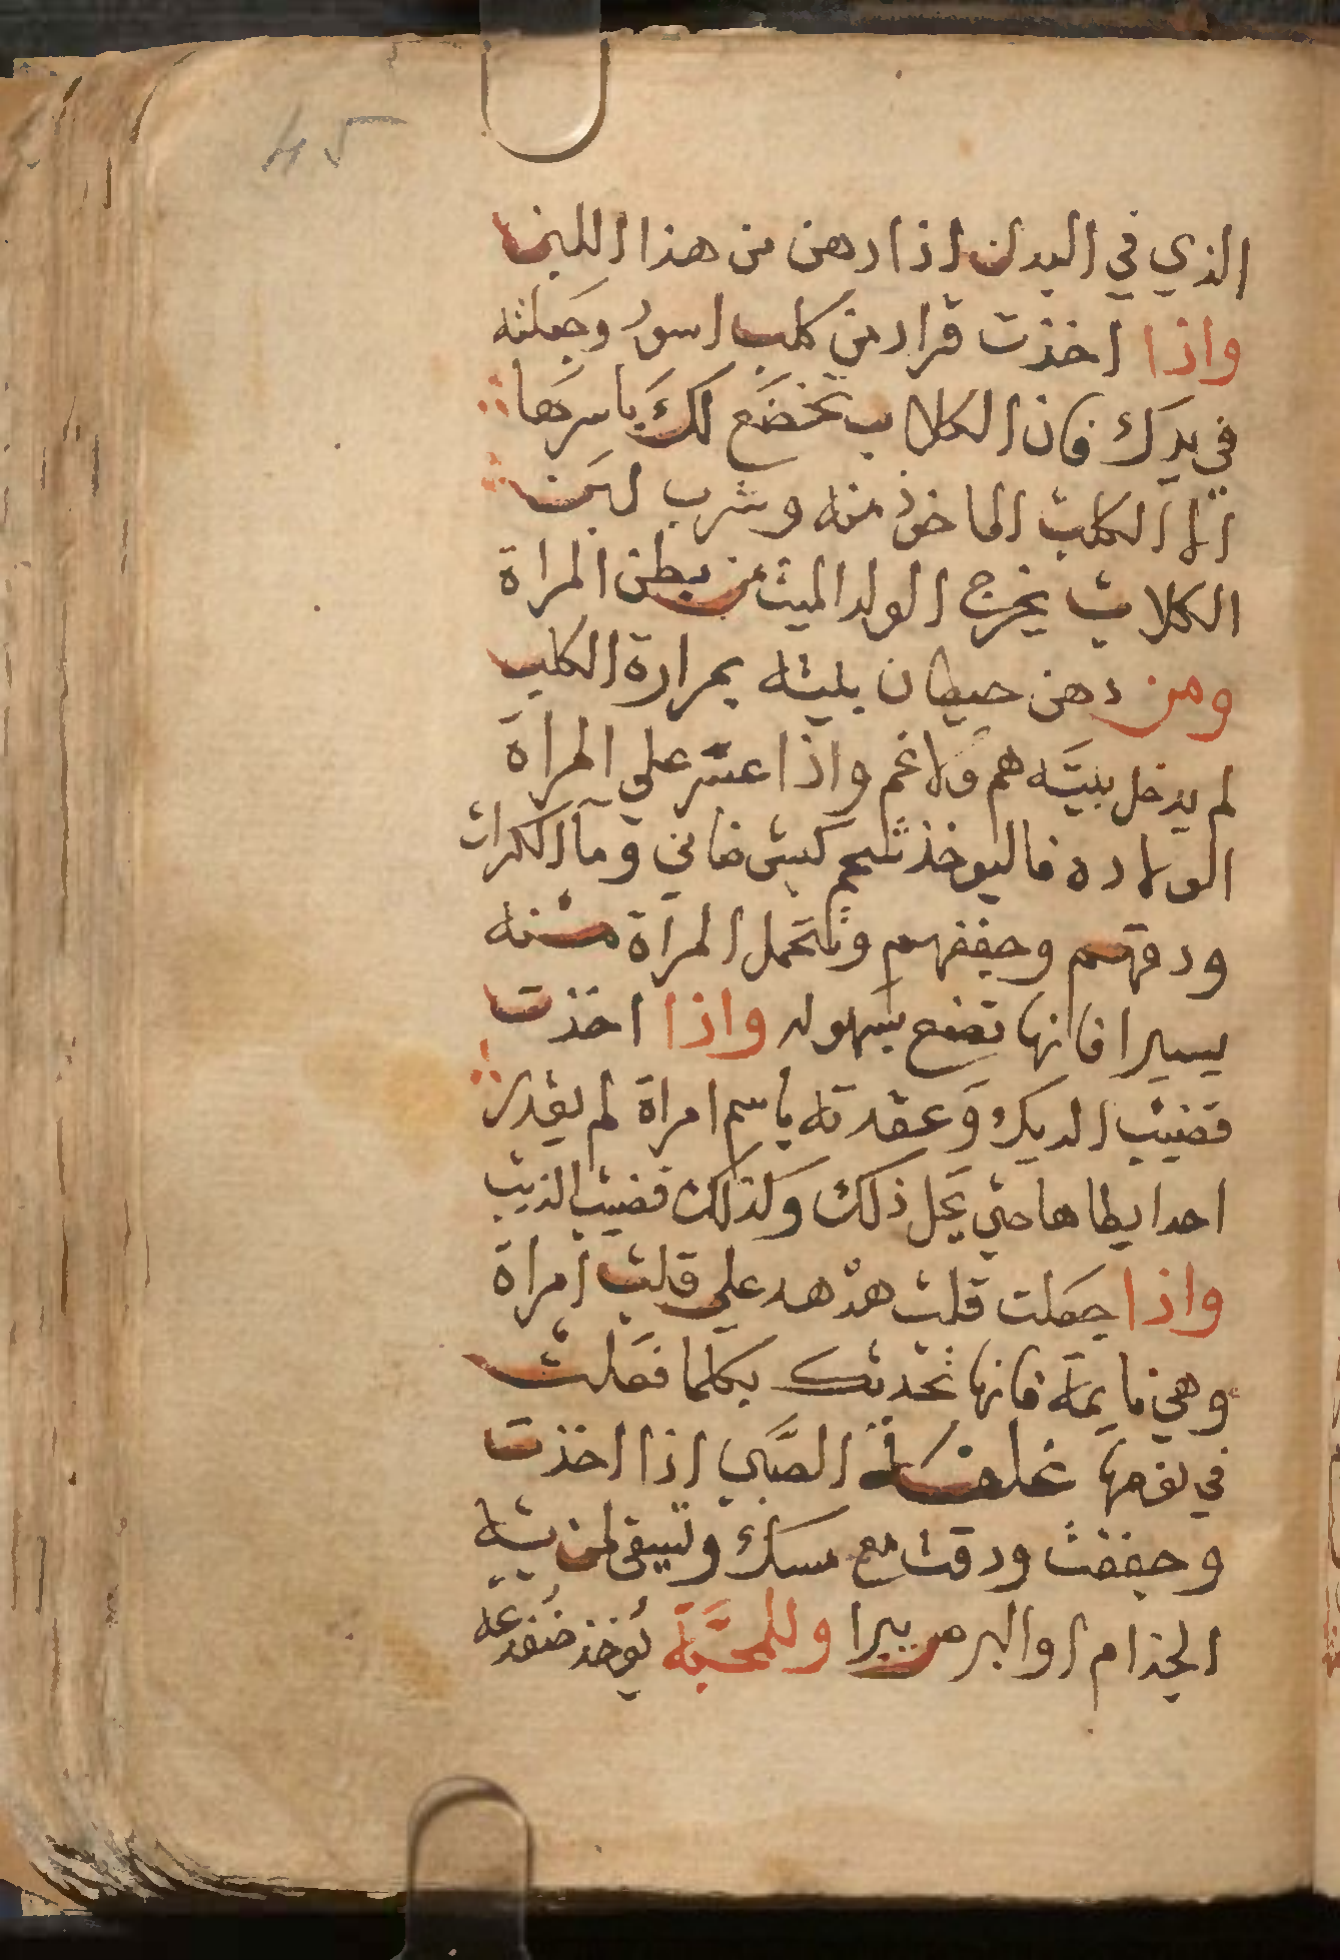 45
الذي في البدن اذا دهن من هذا اللبن
واذا اخذت قراد من كلب اسود وجعلته
في يدك فان الكلاب تخضع لك باسرها
الا الكلب الماخوذ منه وشرب لبن
الكلاب يخرج الولد الميت من بطن المراة
ومن دهن حيطان بليته بمرارة الكلب
لم يدخل بيته هم ولا غم واذا عسر علي المراة
الولاده فاليوخذ شحم كبش ضاني وما الكرات
ودقهم وجففهم وتتحمل المراة منه
يسيرا فانها تضع بسهوله واذا اخذت
قضيب الديك وعقدته باسم امراة لم يقدر
احدا يطاها حتي يحل ذلك وكذلك قضيب الذيب
واذا جعلت قلب هدهد علي قلب امراة
وهي نايمة فانها تحدثك بكلما فعلت
في يومها الصبي اذا اخذت
وجففت ودقت مع مسك وتسقي لمن به
الجذام او البرص يبرا وللمحبة يوخذ ضفدعه